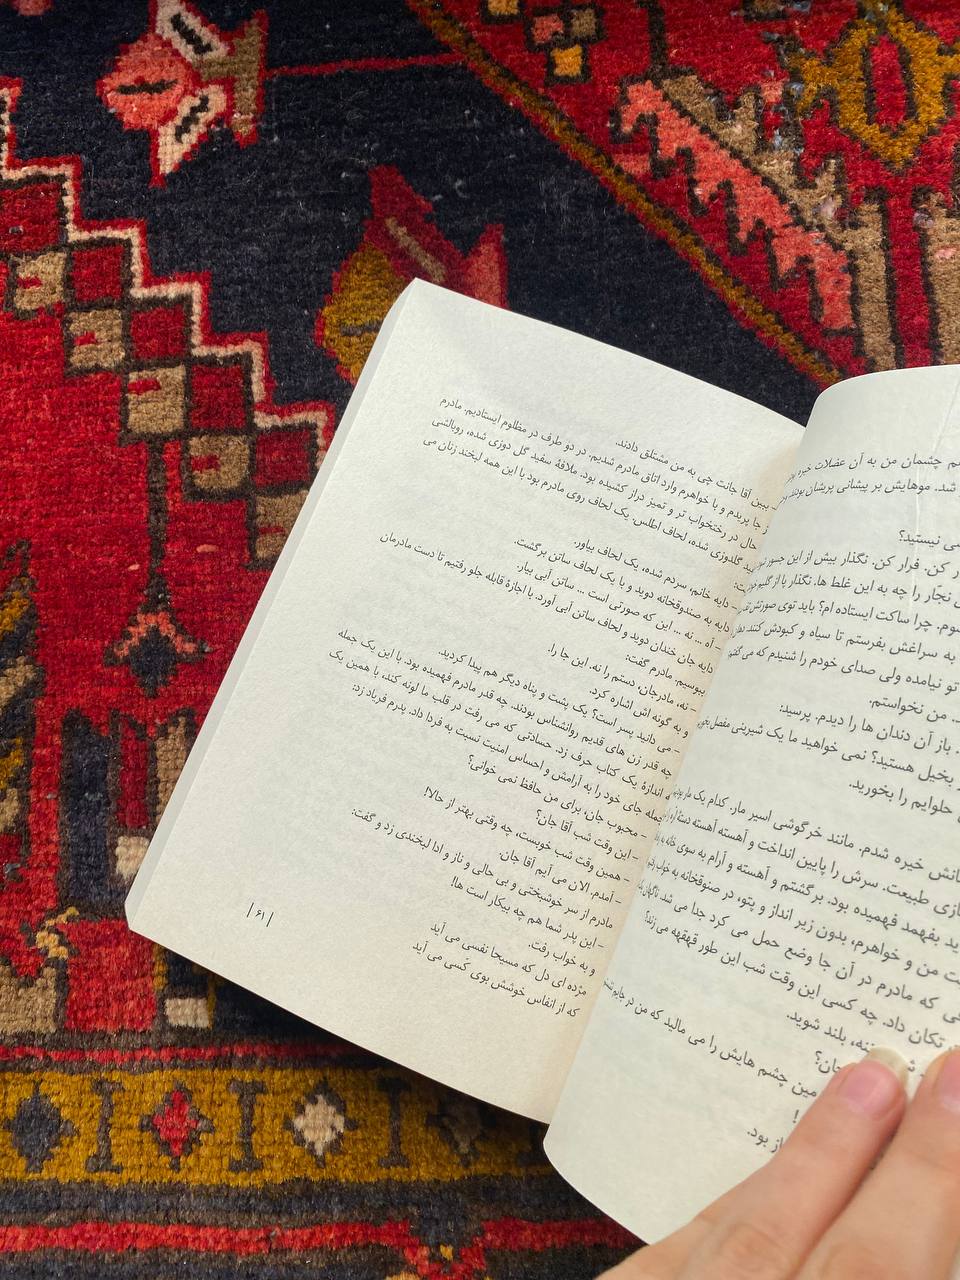 م چشمان من به آن عضلات خیره بود
شد. موهایش بر پیشانی پریشان بودند.
نیستید؟
کن. فرار کن. نگذار بیش از این جسور شود
نجّار را چه به این غلط ها. نگذار پا از گلیم
شوم. چرا ساکت ایستاده ام؟ باید توی صورتش
به سراغش بفرستم تا سیاه و کبودش کنند.
تو نیامده ولی صدای خودم را شنیدم که می گفتم
من نخواستم.
باز آن دندان ها را دیدم. پرسید:
بخیل هستید؟ نمی خواهید ما یک شیرینی مفصل بخوریم
حلوایم را بخورید.
خیره شدم. مانند خرگوشی اسیر مار. کدام یک مار بودیم
طبیعت. سرش را پایین انداخت و آهسته آهسته
بفهمد فهمیده بود. برگشتم و آهسته و آرام به سوی خانه
من و خواهرم، بدون زیر انداز و پتو، در صندوقخانه به خواب
که مادرم در آن جا وضع حمل می کرد جدا می شد. ناگهان
تکان داد. چه کسی این وقت شب این طور قهقهه می زند؟
ننه، بلند شوید.
جان؟
چشم هایش را می مالید که من در جایم
!
باز بود.
– ببین آقا جانت چی به من مشتلق دادند.
از جا پریدم و با خواهرم وارد اتاق مادرم شدیم. در دو طرف در مظلوم ایستادیم. مادرم
حال در رختخواب تر و تمیز دراز کشیده بود. ملافۀ سفید گل دوزی شده، روبالشی
سفید گلدوزی شده، لحاف اطلس. یک لحاف روی مادرم بود با این همه لبخند زنان می
گفت:
– دایه خانم، سردم شده، یک لحاف بیاور.
دایه به صندوقخانه دوید و با یک لحاف ساتن برگشت.
– آه ... نه ... این که صورتی است ... ساتن آبی بیار.
دایه جان خندان دوید و لحاف ساتن آبی آورد. با اجازۀ قابله جلو رفتیم تا دست مادرمان
ببوسیم. مادرم گفت:
– نه، مادرجان، دستم را نه. این جا را.
و به گونه اش اشاره کرد.
– می دانید پسر است؟ یک پشت و پناه دیگر هم پیدا کردید.
چه قدر زن های قدیم روانشناس بودند. چه قدر مادرم فهمیده بود. با این یک جمله
به اندازۀ یک کتاب حرف زد. حسادتی که می رفت در قلب ما لونه کند، با همین یک
جمله جای خود را به آرامش و احساس امنیت نسبت به فردا داد. پدرم فریاد زد:
– محبوب جان، برای من حافظ نمی خوانی؟
– این وقت شب آقا جان؟
– همین وقت شب خوبست، چه وقتی بهتر از حالا!
– آمدم. الان می آیم آقا جان.
مادرم از سر خوشبختی و بی حالی و ناز و ادا لبخندی زد و گفت:
– این پدر شما هم چه بیکار است ها!
و به خواب رفت.
مژده ای دل که مسیحا نفسی می آید
که از انفاس خوشش بوی کسی می آید
| ۶۱ |